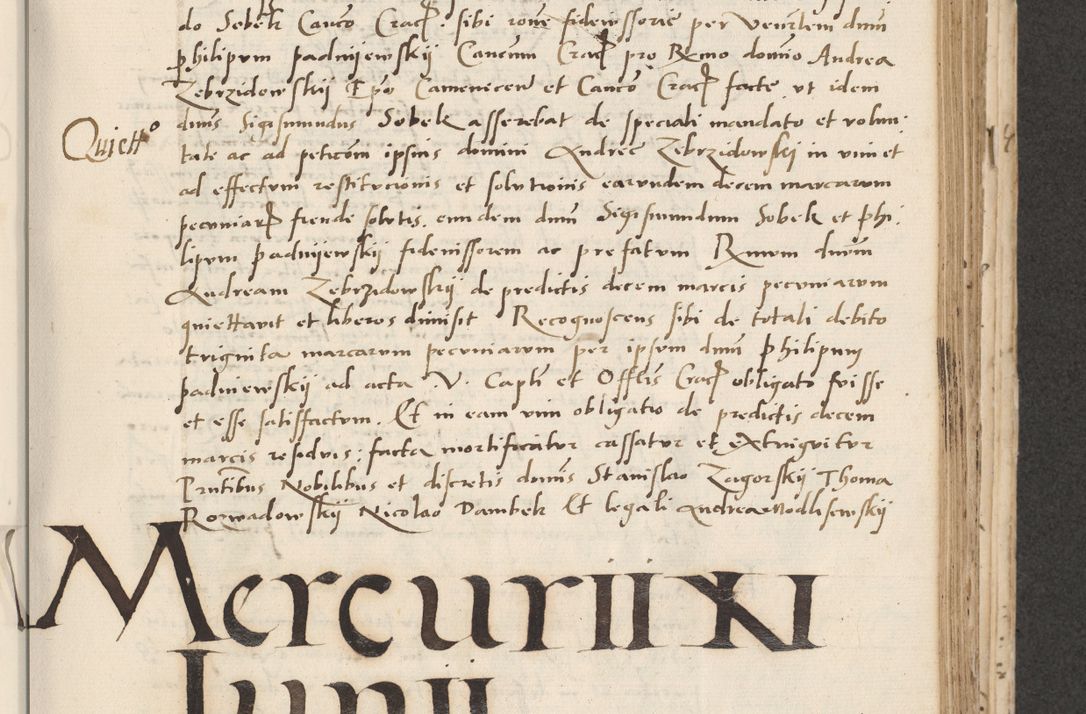 do Sebek Canco Cracp sibi rone fidejussorie per Venrlem dnm
philipvm padnijewskij Cancum Cracp pro Rmo domino Andrea
Zebrzidowskij Epo Camenecen et Canco Cracp facte vt idem
Quiett⁰
dnus Sigismundus Sobek asserebat de speciali mandato et volun:
tate ac ad peticom ipsius domini Andree Zebrzidowskj in vim et
ad effectvm restitvcionis et solvtionis earundem decem marcarvm
pecvniarp fiende solvtis, eundem dnm Sigismundum Sobek et phi:
lipvm padnijewskij fideiussorem ac prefatvm Rmvm dnvm
Andream Zebrzidowskij de predictis decem marcis pecvniarvm
quiettavit et liberos dimisit Recognoscens sibi de totali debito
triginta marcarvm pecvniarvm per ipsvm dnm philipvm
padniewskij ad acta V. Capli et Offtis Cracp obligato fvisse
et esse satisfactvm. Et in eam vim obligatio de predictis decem
marcis residvis: facta mortificatvr cassatvr et extingvitvr
Prntibus Nobilibus et discretis dnnis Stanislao Zagorskij Thoma
Rozwadowskij Nicolao Dambek Et legali Andrea Modlisewskij
Mercurii XI
Iunii